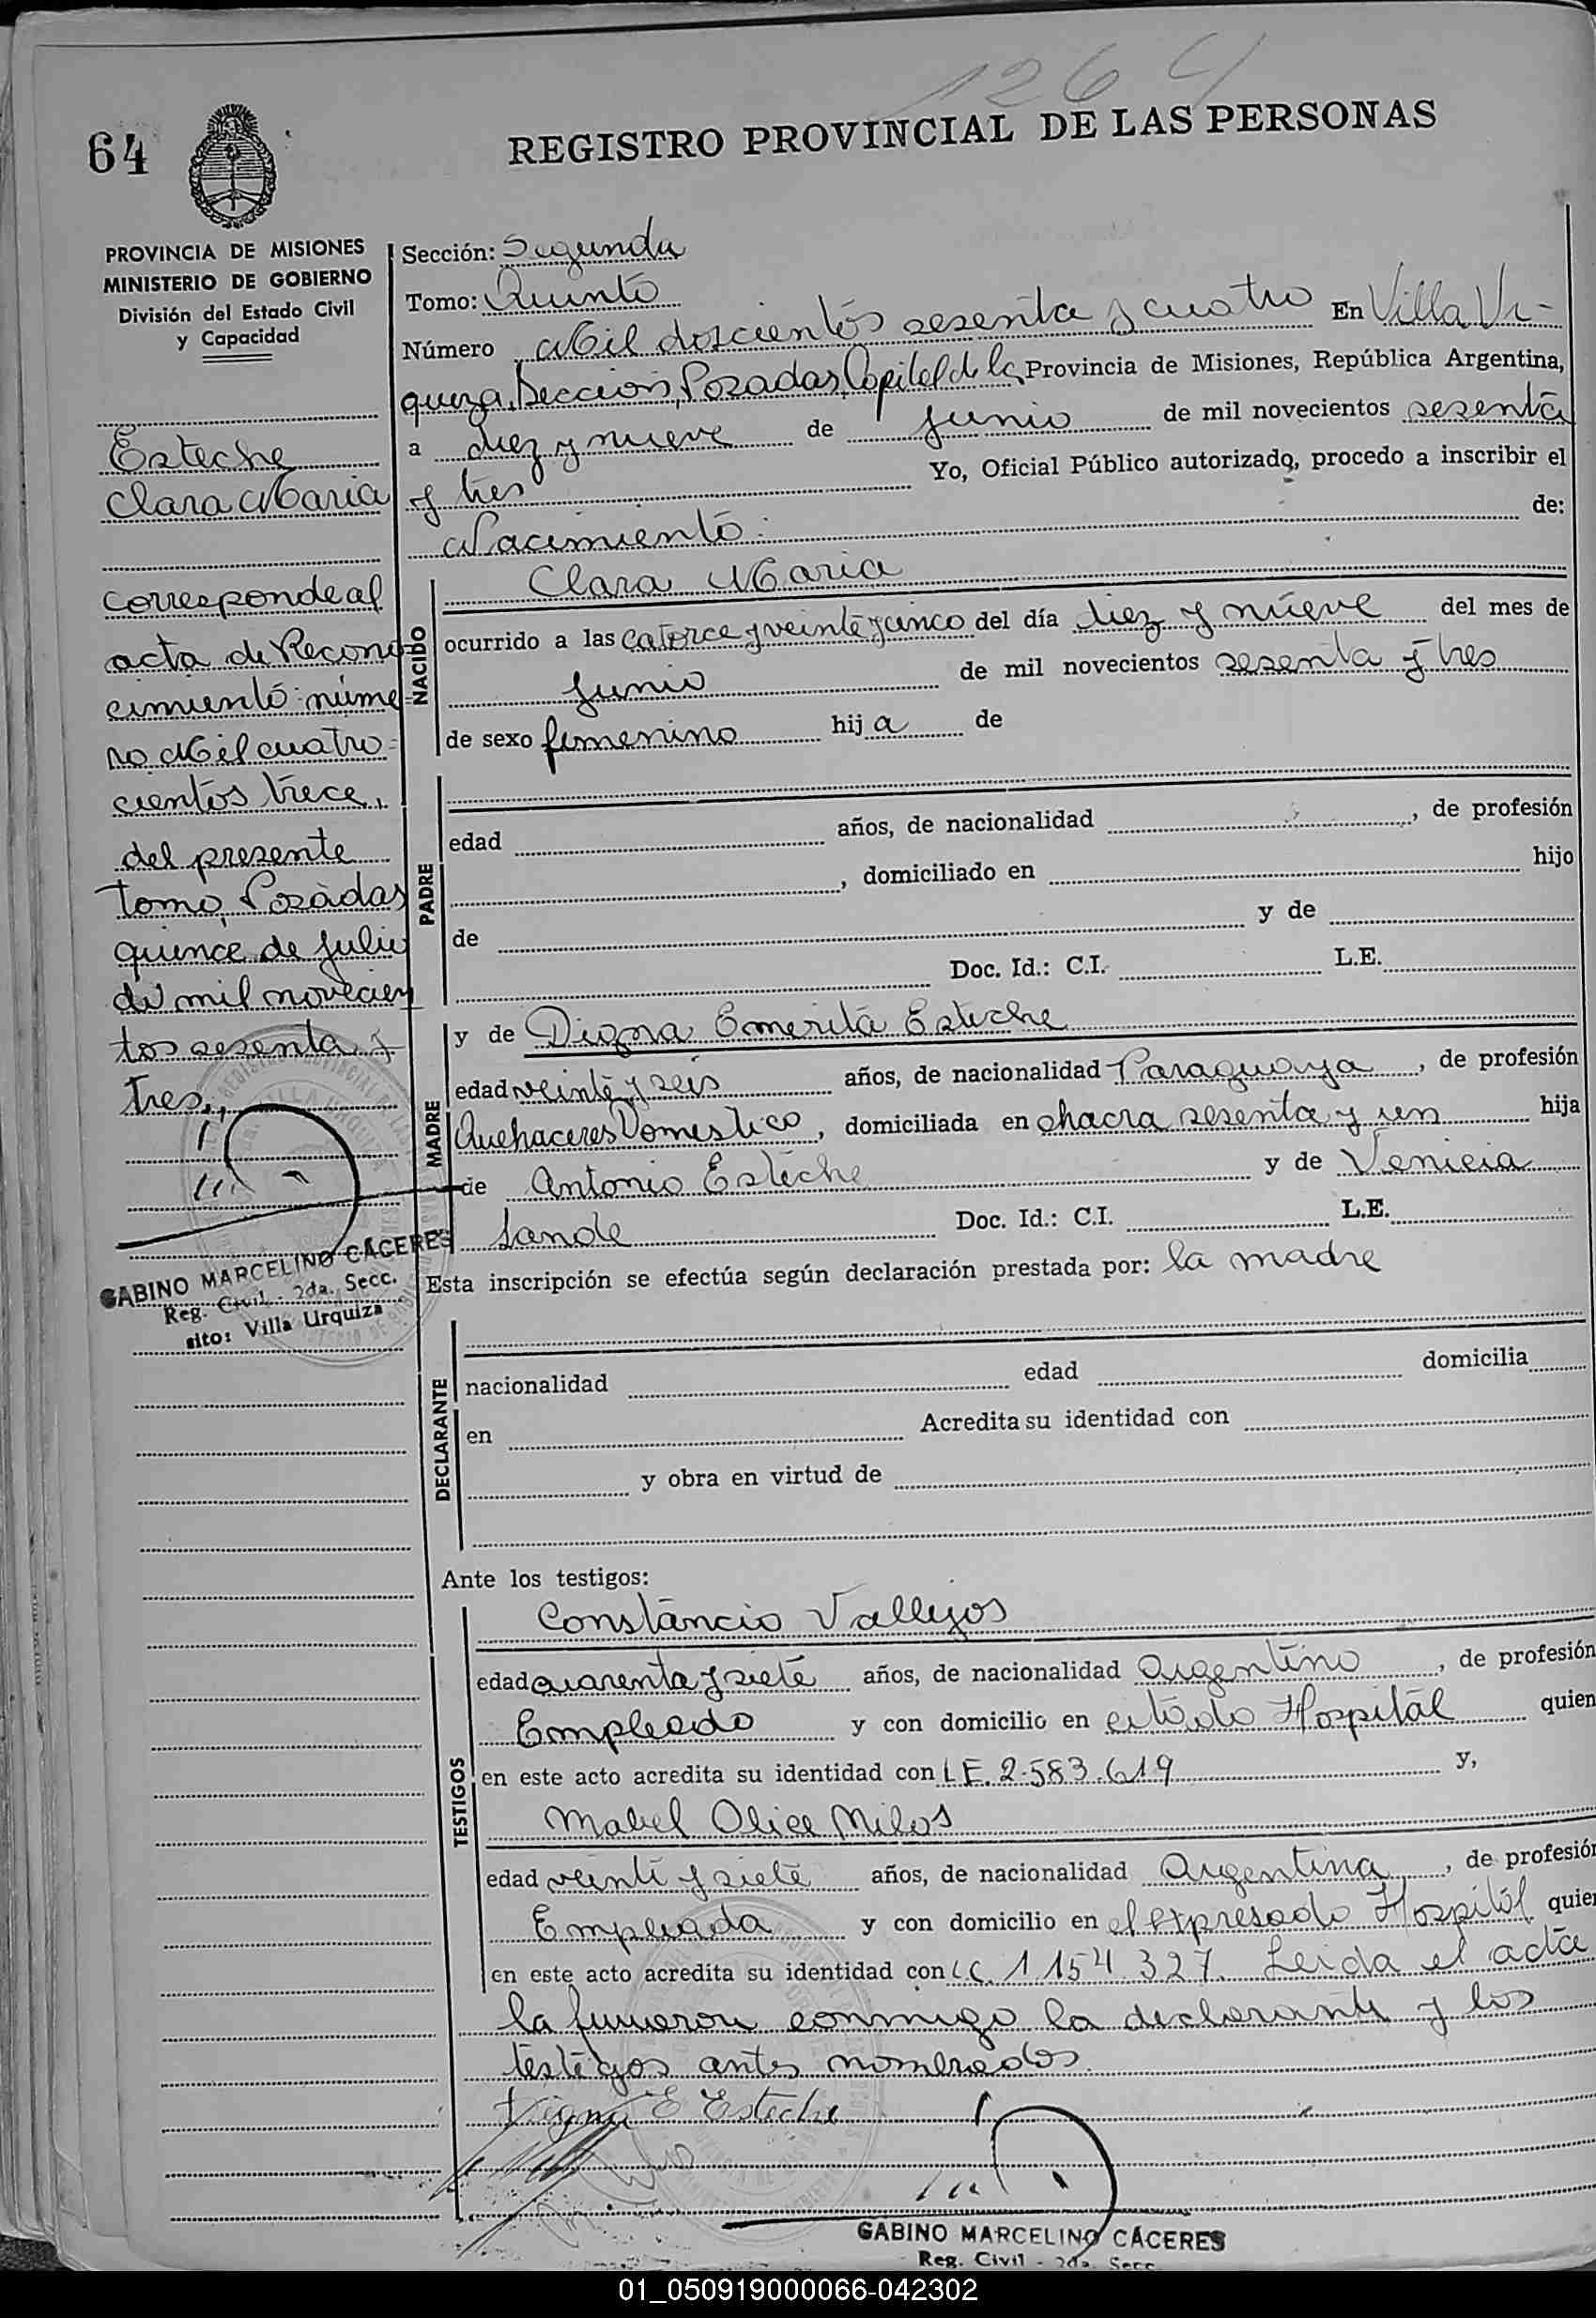 1264
64
REGISTRO PROVINCIAL DE LAS PERSONAS
PROVINCIA DE MISIONES
MINISTERIO DE GOBIERNO
División del Estado Civil
y Capacidad
Esteche
Clara Maria
corresponde al
acta de Recono
cimiento núme
ro Mil cuatro-
cientos trece,
del presente
tomo, Posadas
quince de Julio
de mil novecien
tos sesenta y
tres.,
GABINO MARCELINO CÁCERES
Reg. Civil - 2da. Secc.
sito: Villa Urquiza
Sección: Segunda
Tomo: Quinto
Número Mil doscientos sesenta y cuatro En Villa Ur-
quiza, Seccion, Posadas, Capital de la Provincia de Misiones, República Argentina,
a diez y nueve de Junio de mil novecientos sesenta
y tres Yo, Oficial Público autorizado, procedo a inscribir el
Nacimiento: de:
NACIDO
Clara Maria
ocurrido a las catorce y veinte y cinco del día diez y nueve del mes de
Junio de mil novecientos sesenta y tres
de sexo femenino hija de
PADRE
edad años, de nacionalidad , de profesión
, domiciliado en hijo
de y de
Doc. Id.: C.I. L.E.
MADRE
y de Digna Emerita Esteche
edad veinte y seis años, de nacionalidad Paraguaya, de profesión
Quehaceres Domestico, domiciliada en chacra sesenta y un hija
de Antonio Esteche y de Venicia
Sande Doc. Id.: C.I. L.E.
Esta inscripción se efectúa según declaración prestada por: la madre
DECLARANTE
nacionalidad edad domicilia
en Acredita su identidad con
y obra en virtud de
Ante los testigos:
TESTIGOS
Constancio Vallejos
edad cuarenta y siete años, de nacionalidad Argentino, de profesión
Empleado y con domicilio en citado Hospital quien
en este acto acredita su identidad con L E. 2.583.619 y,
Mabel Olice Milos
edad veinti y siete años, de nacionalidad Argentina, de profesión
Empleada y con domicilio en el expresado Hospital quien
en este acto acredita su identidad con L C. 1.154.327. Leida el acta
la firmaron conmigo la declarante y los
testigos antes nombrados.
Digna E Esteche
GABINO MARCELINO CÁCERES
Reg. Civil - 2da. Secc
01_050919000066-042302